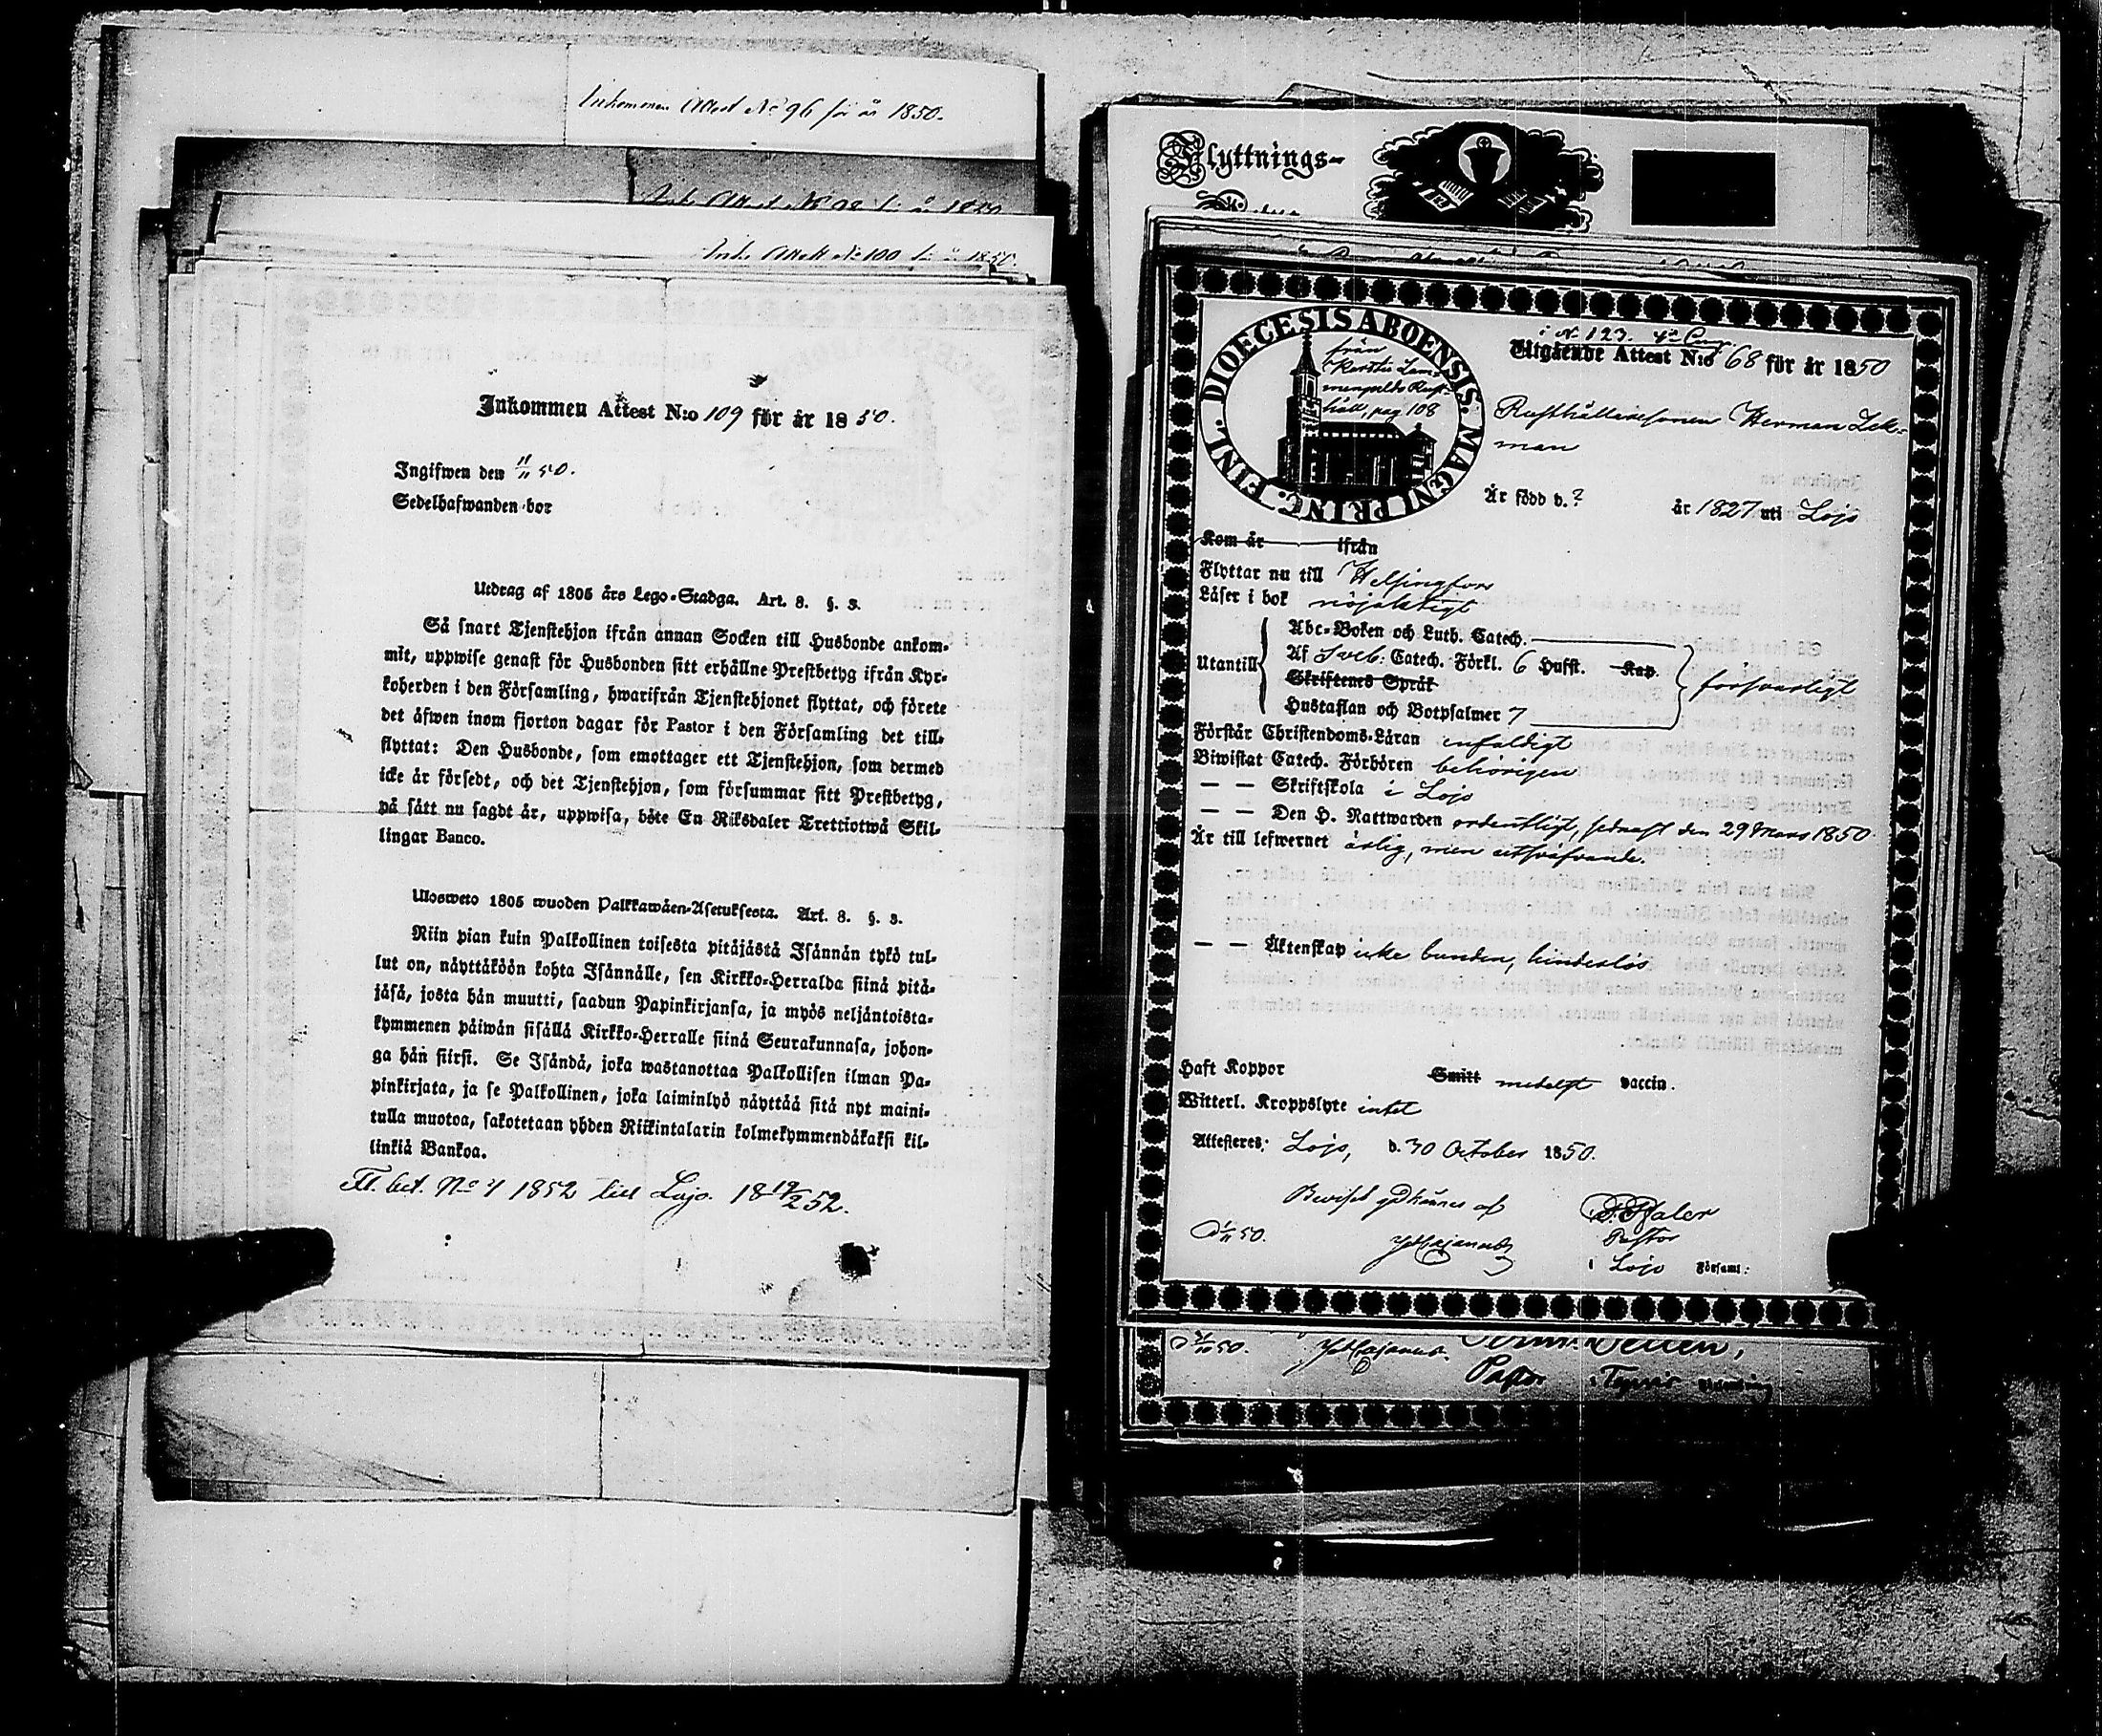 Inkommen Attest No 96 för år 1850.
Ink. Attest No 98 för år 1850
Ink. Attest No 100 för år 1850.
Inkommen Attest N:o 109 för år 1850.
Ingifwen den 11/11 50.
Sedelhafwanden bor
Utdrag af 1805 års Lego-Stadga. Art. 8. §. 3.
Så snart Tjenstehjon ifrån annan Socken till Husbonde ankom-
mit, uppwise genast för Husbonden sitt erhållne Prestbetyg ifrån Kyr-
koherden i den Församling, hwarifrån Tjenstehjonet flyttat, och förete
det äfwen inom fjorton dagar för Pastor i den Församling det till-
flyttat: Den Husbonde, som emottager ett Tjenstehjon, som dermed
icke är försedt, och det Tjenstehjon, som försummar sitt Prestbetyg,
på sätt nu sagdt är, uppwisa, böte En Riksdaler Trettiotwå Skil-
lingar Banco.
Ulosweto 1805 wuoden Palkkawäen-Asetuksesta. Art. 8. §. 3.
Niin pian kuin Palkollinen toisesta pitäjästä Isännän tykö tul-
lut on, näyttäköön kohta Isännälle, sen Kirkko-Herralda siinä pitä-
jäsä, josta hän muutti, saadun Papinkirjansa, ja myös neljäntoista-
kymmenen päiwän sisällä Kirkko-Herralle siinä Seurakunnasa, johon-
ga hän siirsi. Se Isändä, joka wastanottaa Palkollisen ilman Pa-
pinkirjata, ja se Palkollinen, joka laiminlyö näyttää sitä nyt maini-
tulla muotoa, sakotetaan yhden Riikintalarin kolmekymmendäkaksi kil-
linkiä Bankoa.
Fl. bet. No 4 1852 till Lojo. 18 19/2 52.
Flyttnings-
DIOECESIS ABOENSIS. MAGNI PRINC. FINL.
från
mengelds Rust-
håll, pag 108
i N. 123. 4
Utgående Attest N:o 68 för år 1850
Rusthållaresonen Herman Lek-
man
Är född d. ? år 1827 uti Lojo
Kom år ifrån
Flyttar nu till Helsingfors
Läser i bok nöjaktigt
Utantill
Abc-Boken och Luth. Catech.
Af Sveb: Catech. Förkl. 6 Hufst. Kap.
Skriftenes Språk
Hustaflan och Botpsalmer 7
försvarligt
Förstår Christendoms-Läran enfaldigt
Biwistat Catech. Förhören behörigen
— — Skriftskola i Lojo
— — Den H. Nattwarden ordentligt, sednast den 29 Mars 1850
Är till lefwernet ärlig, men utsväfvande.
— — Äktenskap icke bunden, hinderlös
Haft Koppor Smitt medelst vaccin.
Witterl. Kroppslyte intet
Attesteres: Lojo, d. 30 October 1850.
Beviset godkännes af
Pastor
i Lojo Församl:
Pastor